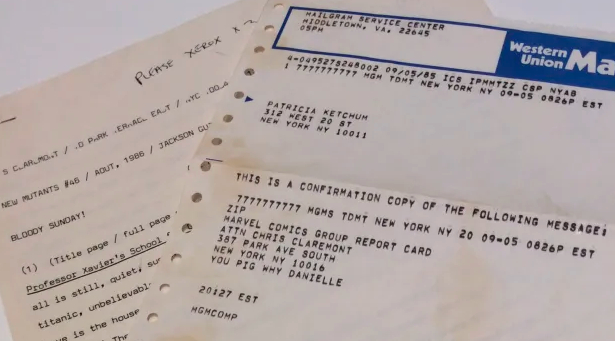 PLEASE XEROX X 2
NEW MUTANTS #46 / AOUT, 1986 / JACKSON
BLOODY SUNDAY!
(1) (Title page / full page
Professor Xavier's School
all is still, quiet,
titanic, unbelievabl
is the house
MAILGRAM SERVICE CENTER
MIDDLETOWN, VA. 22645
05PM
Western
Union Ma
4-049527S248002 09/05/85 ICS IPMMTZZ CSP NYAB
1 7777777777 MGM TDMT NEW YORK NY 09-05 0826P EST
PATRICIA KETCHUM
312 WEST 20 ST
NEW YORK NY 10011
THIS IS A CONFIRMATION COPY OF THE FOLLOWING MESSAGE:
7777777777 MGMS TDMT NEW YORK NY 20 09-05 0826P EST
ZIP
MARVEL COMICS GROUP REPORT CARD
ATTN CHRIS CLAREMONT
387 PARK AVE SOUTH
NEW YORK NY 10016
YOU PIG WHY DANIELLE
20:27 EST
MGMCOMP